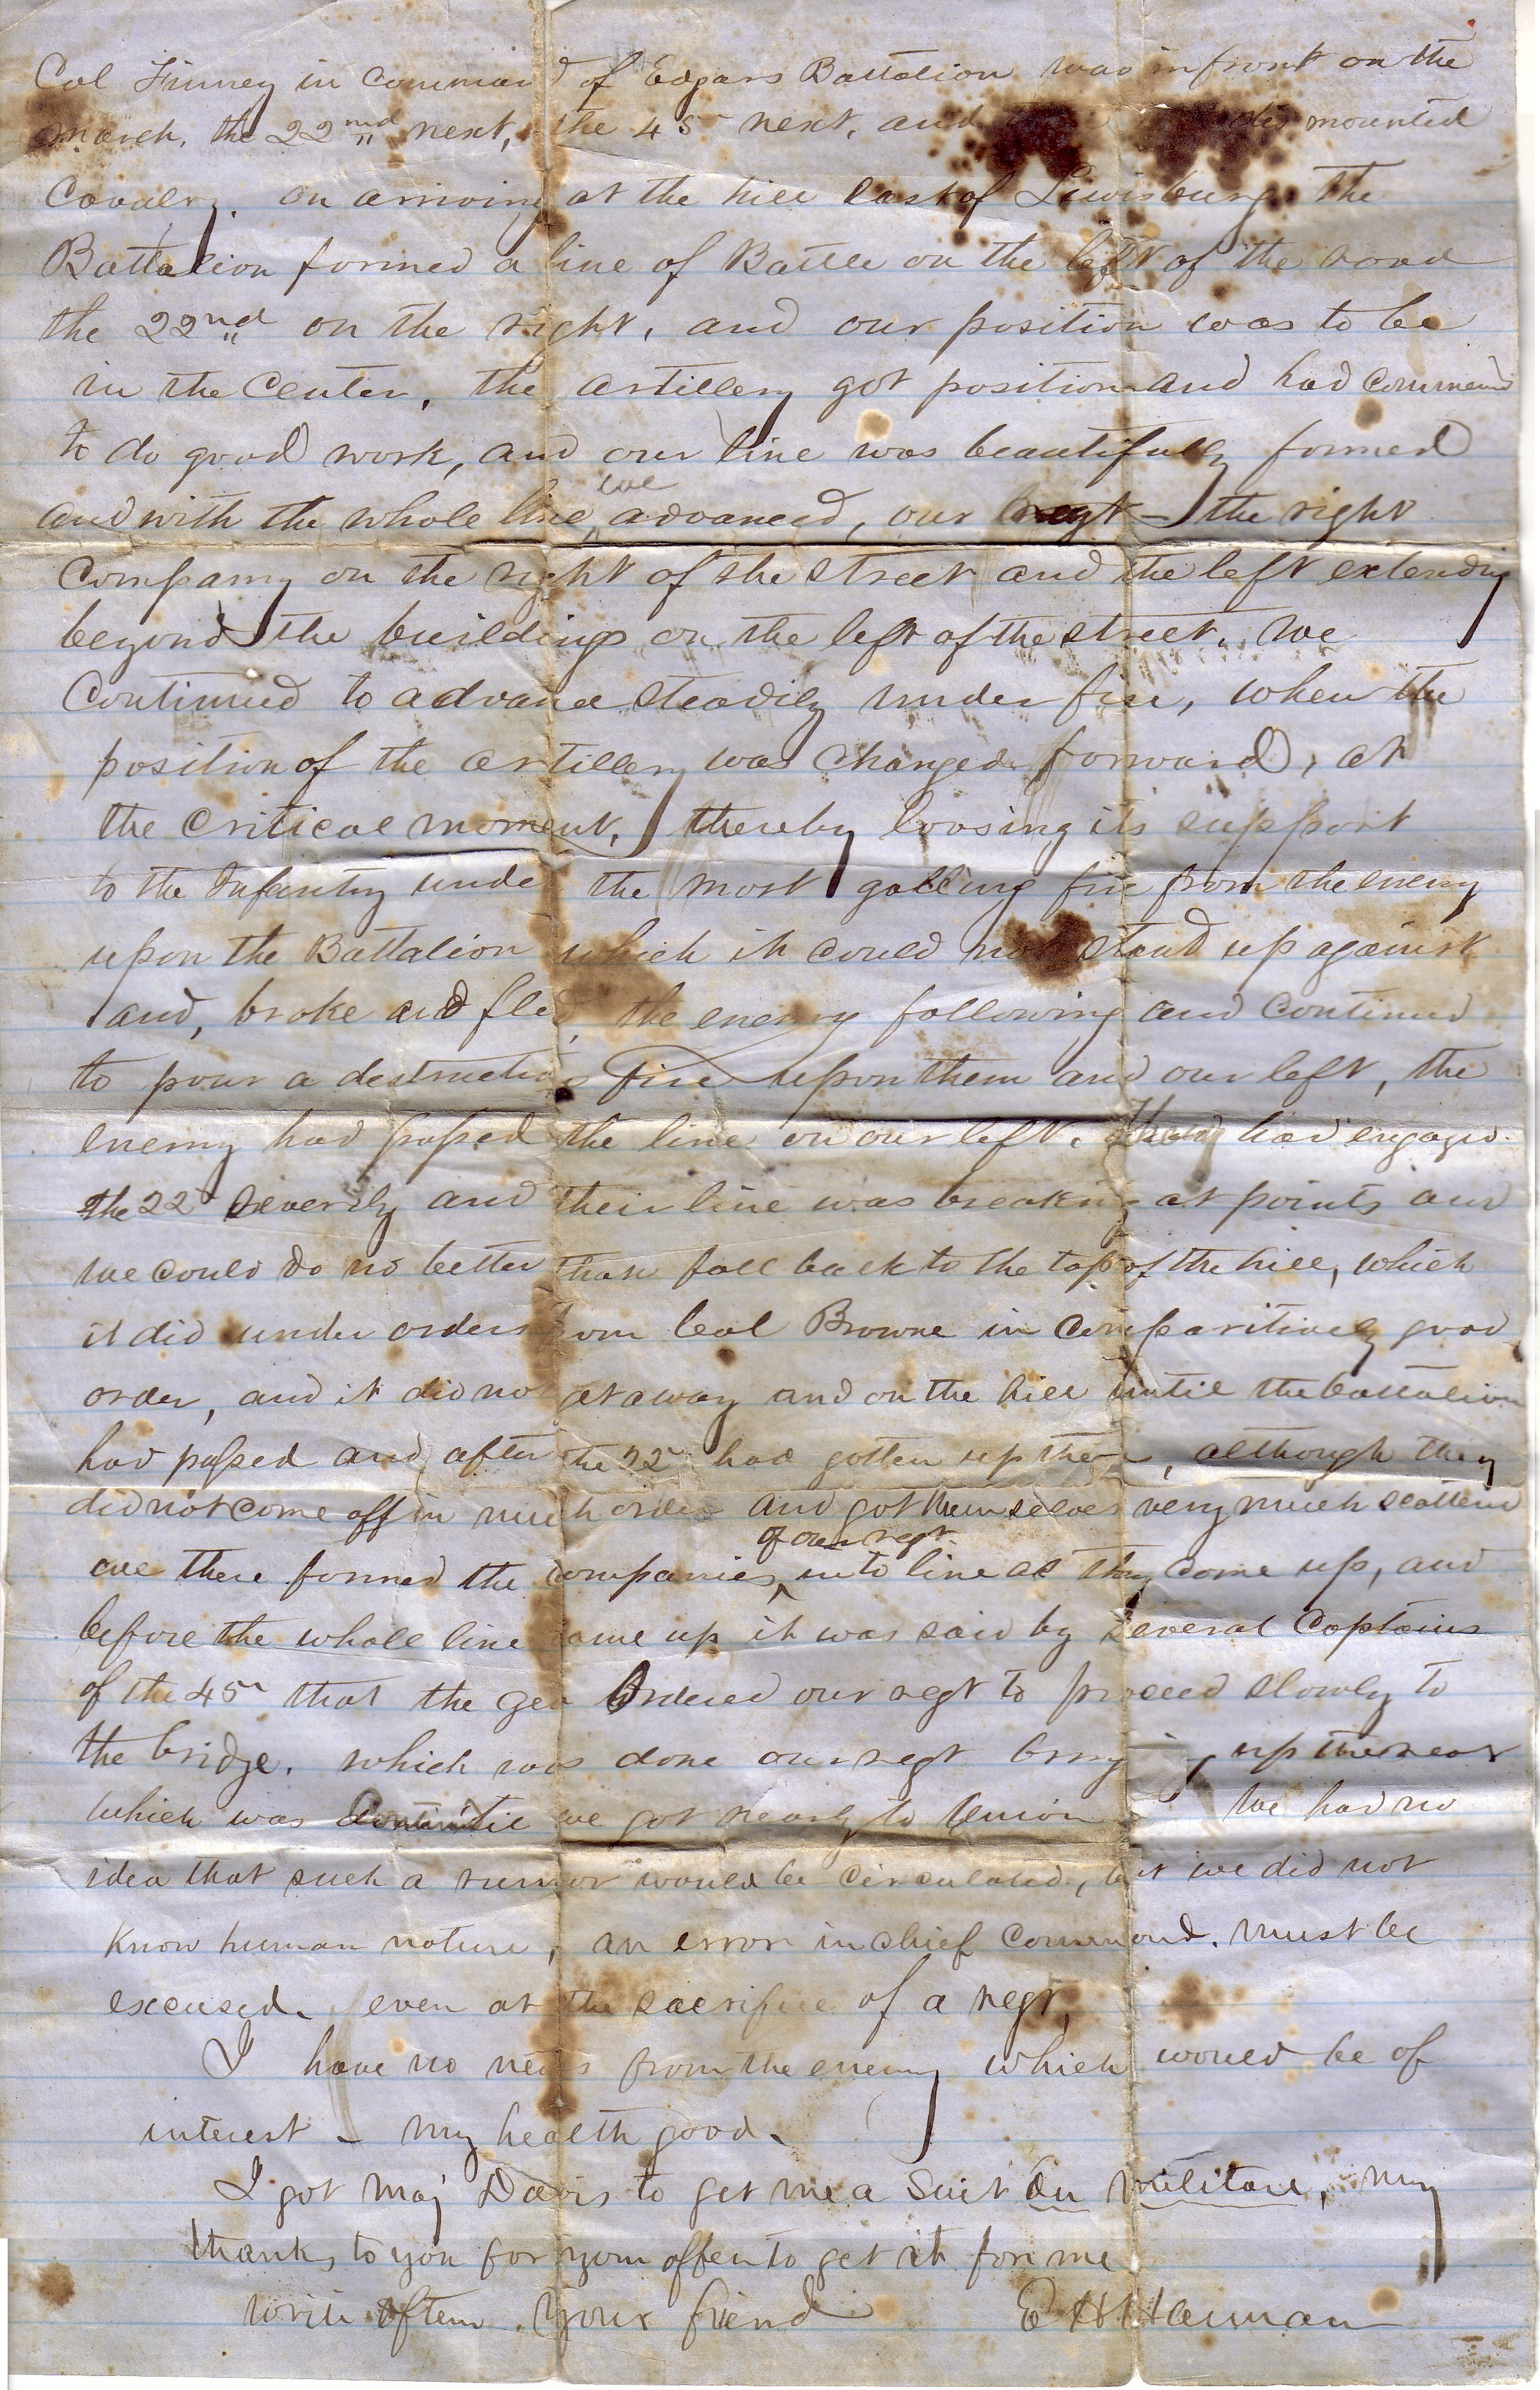 Col Finney in Command of Edgars Battalion was in front on the
march, the 22nd next, the 45 next, and mounted
Cavalry. on arriving at the hill east of Lewisburg the
Battalion formed a line of Battle on the left of the road
the 22nd on the right, and our position was to be
in the Center, the artillery got position and had commenced
to do good work, and our line was beautifully formed
and with the whole line we advanced, our regt - the right
Company on the right of the street and the left extending
beyond the buildings on the left of the street. We
Continued to advance steadily under fire, when the
position of the artillery was changed forward, at
the critical moment, thereby loosing its support
to the Infantry under the most galling fire from the enemy
upon the Battalion which it could not stand up against
and, broke and fled, the enemy following and continued
to pour a destructive Fire upon them and our left, the
enemy had passed the line on our left. They had engaged
the 22 severely and their line was breaking at points and
we could do no better than fall back to the top of the hill, which
it did under orders from Col Browne in Comparitively good
order, and it did not get away and on the hill until the battalion
had passed and after the 22 had gotten up there, although they
did not come off in much order and got themselves very much scattered
we there formed the companies of our regt into line as they come up, and
before the whole line came up it was said by several Captains
of the 45 that the Gen Ordered our regt to proceed slowly to
the bridge. which was done our regt bring up the rear
which was we got nearly to Union We had no
idea that such a rumor would be circulated, but we did not
know human nature, an error in chief Command. must be
excused. even at the sacrifice of a regt,
I have no news from the enemy which would be of
interest - my health good.
I got Maj Davis to get me a Suit du militare, my
thanks to you for your offer to get it for me
write often. Your friend E H Harman